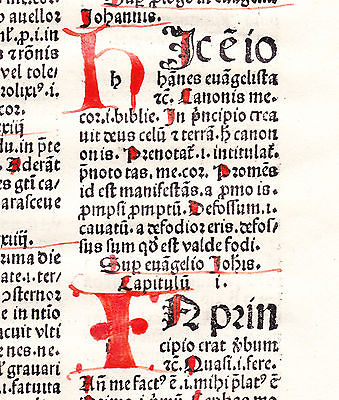 auellor
p̄. i. in
⁊ rōnis
vel tolei
rolixꝰ. i.
cor.
xxiij
du. in p̄te
. Aderāt
es gti ca/
arasceue
xiiij.
rima die
ate. i. ter/
osternor
e in ntio
acuit vlti
nes endi
grauari.
. i. fatuita
Sup̄ plogo in euāgeliū
Johannis.
HIc ē io
hānes euāgelista
⁊c. Canonis me-
cor. i. biblie. In p̄ncipio crea
uit deus celū ⁊ terrā. h̄ canon
onis. Prenotat̄. i. intitulat̄.
p̄noto tas. me. cor. Promēs
id est manifestās. a p̄mo is.
p̄mpsi p̄mptū. Defossum. i.
cauatū. a defodior eris. defos/
sus sum qđ est valde fodi.
Sup̄ euāgelio Johis.
Capitulū I.
IN prin
cipio erat v̄bum
⁊c. Quasi. i. fere.
An̄ me factꝰ ē. i. mihi p̄latꝰ ē